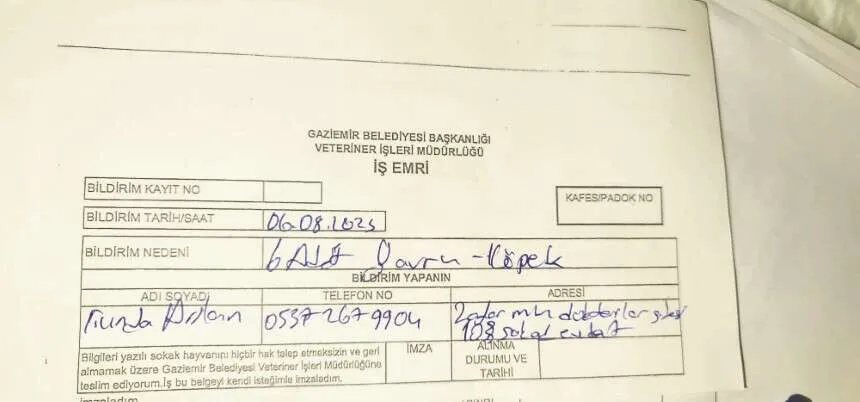 GAZİEMİR BELEDİYESİ BAŞKANLIĞI
VETERİNER İŞLERİ MÜDÜRLÜĞÜ
İŞ EMRİ
BİLDİRİM KAYIT NO
KAFES/PADOK NO
BİLDİRİM TARİH/SAAT 06.08.2023
BİLDİRİM NEDENİ 6 Adet Yavru-Köpek
BİLDİRİM YAPANIN
ADI SOYADI TELEFON NO ADRESİ
Arslan 0537 267 9904 Zafer mh
108 sokak
Bilgileri yazılı sokak hayvanını hiçbir hak talep etmeksizin ve geri
almamak üzere Gaziemir Belediyesi Veteriner İşleri Müdürlüğüne
teslim ediyorum.İş bu belgeyi kendi isteğimle imzaladım.
İMZA
ALINMA
DURUMU VE
TARİHİ